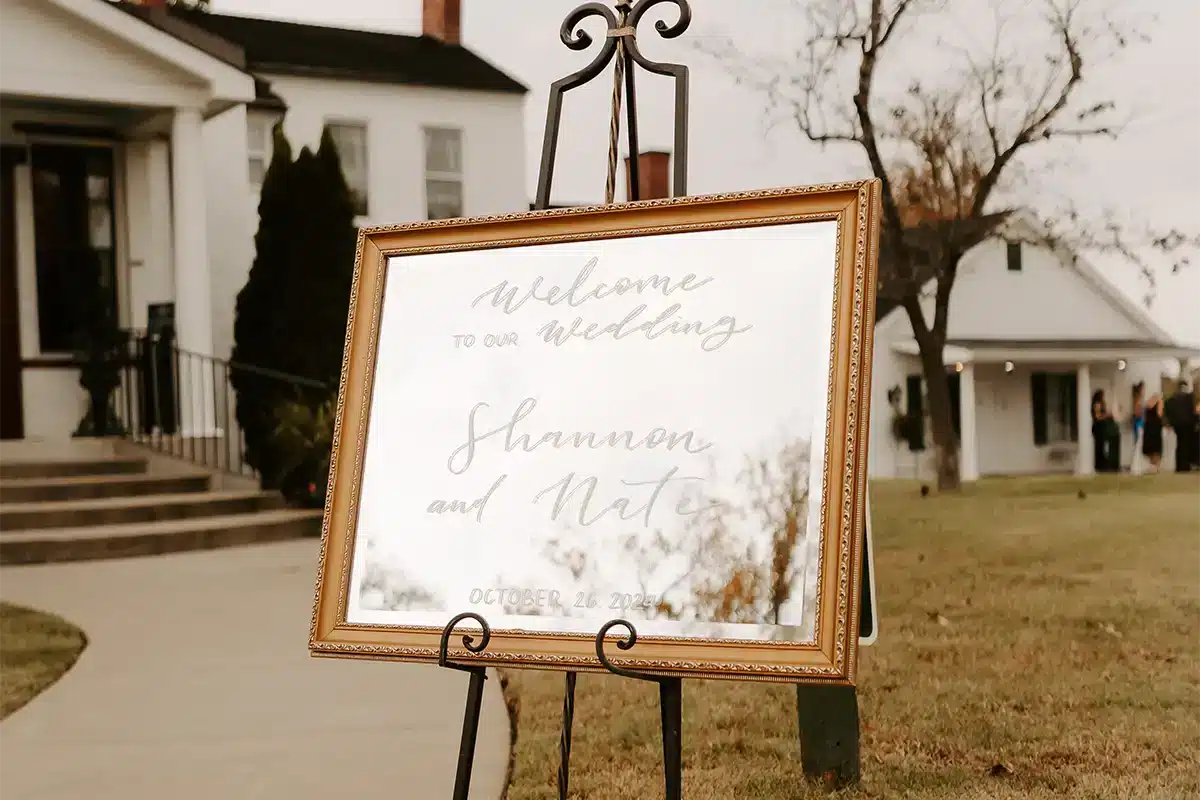 Welcome
TO OUR Wedding
Shannon
and Nate
OCTOBER 26